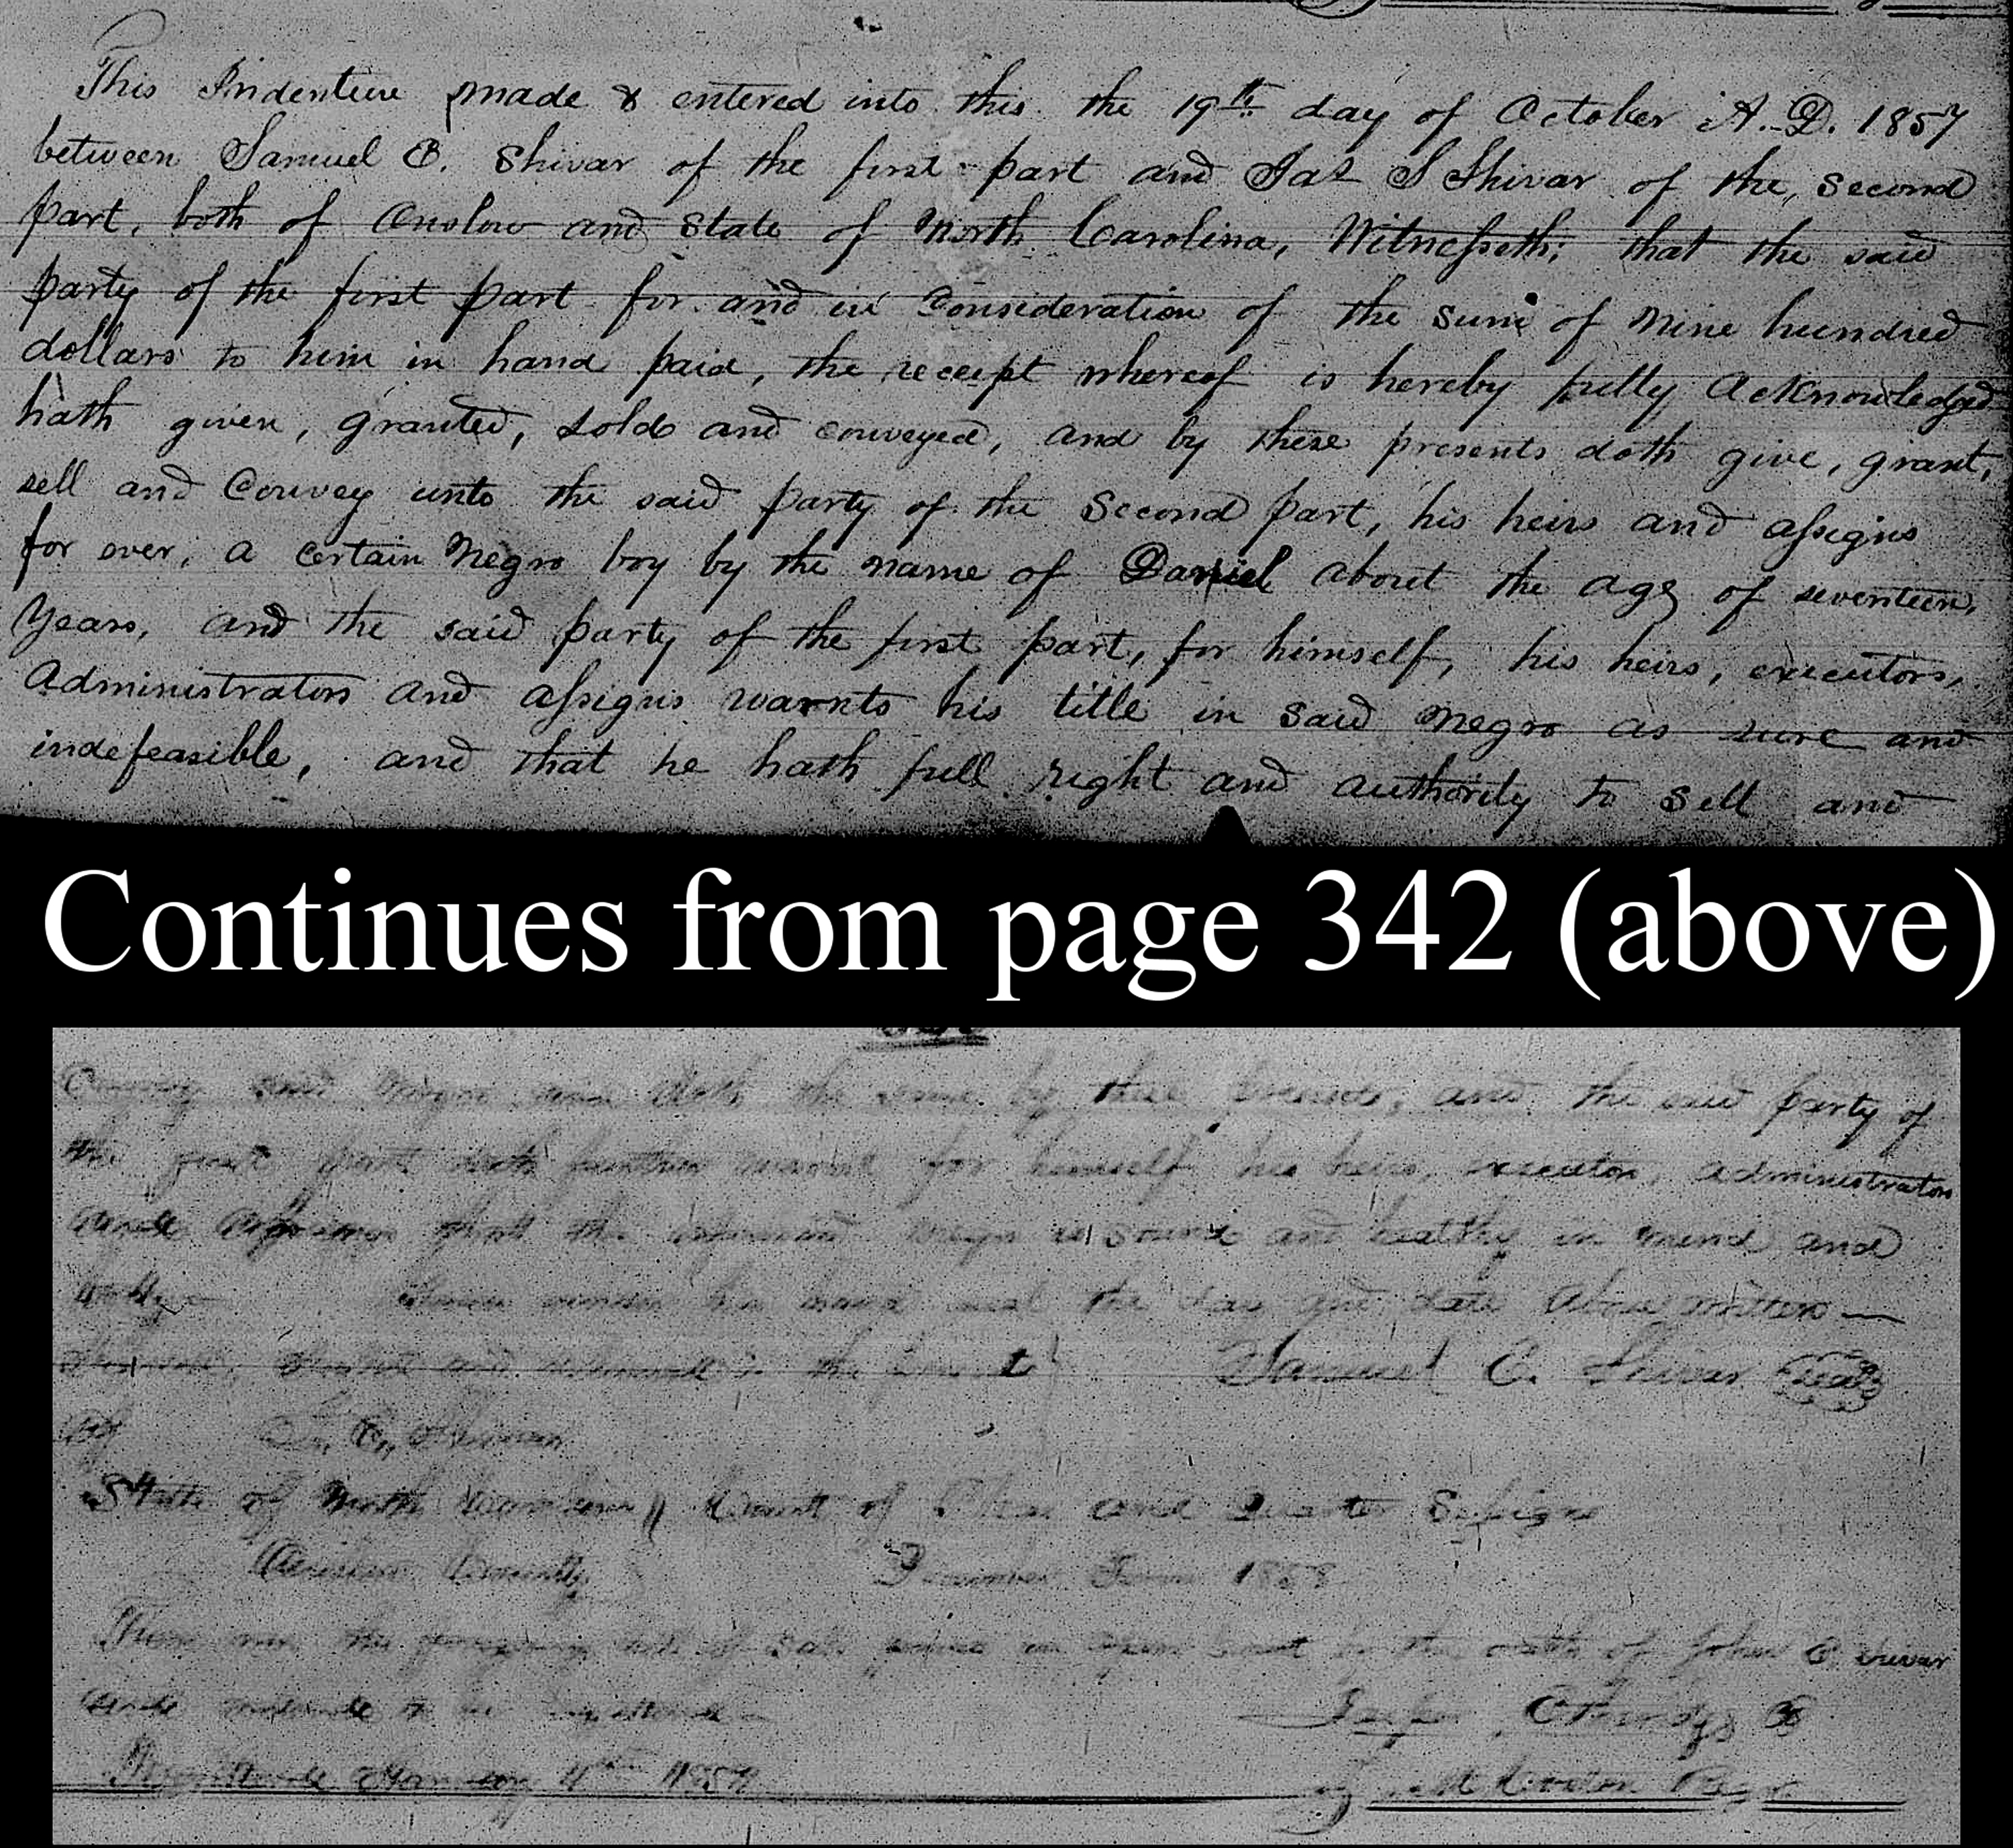 This Indenture made & entered into this the 19th day of October A.D. 1857
between Samuel C. Shivar of the first part and Jas S Shivar of the, second
part, both of Onslow and State of North Carolina, Witnesseth; that the said
party of the first part for and in Consideration of the sum of Nine hundred
dollars to him in hand paid, the receipt whereof is hereby fully acknowledged
hath given, granted, sold and conveyed, and by these presents doth give, grant,
sell and Convey unto the said party of the Second part, his heirs and assigns
for ever, a certain Negro boy by the name of Daniel about the age of seventeen,
Years, and the said party of the first part, for himself, his heirs, executors,
Administrators and assigns warnts his title in said Negro as sure and
indefeasible, and that he hath full right and authority to sell and
Continues from page 342 (above)
Convey said Negro and doth the same by these presents, and the said party of
the first part doth further warnt for himself his heirs, executors, administrators
and assigns that the Negro is sound and healthy in mind and
body his hand seal the day and date above written
in the Samuel C. Shivar Seal
of
State of North Carolina Court of Pleas and Quarter Sessions
Onslow County Term 185
the foregoing bill of sale in open Court the oath of John Shivar
and to be
4th 185